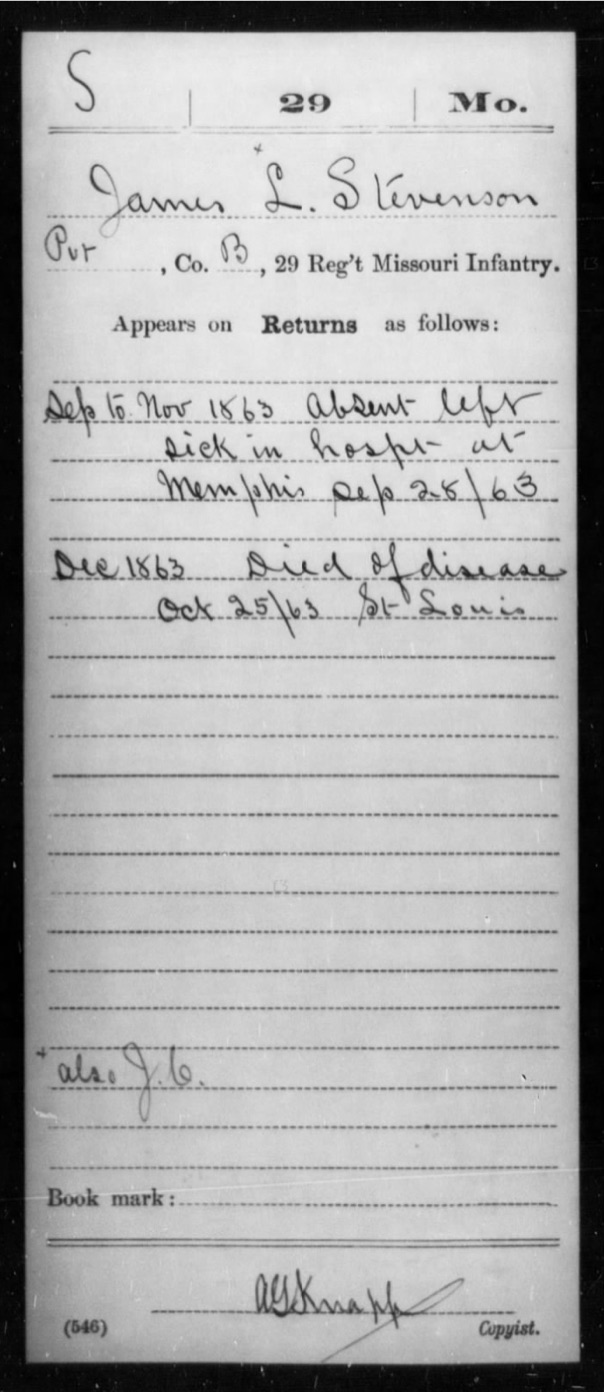 S | 29 | Mo.
+
James L. Stevenson
Pvt , Co. B , 29 Reg't Missouri Infantry.
Appears on Returns as follows:
Sep to Nov 1863 Absent left
sick in hospt at
Memphis Sep 28/63
Dec 1863 Died of disease
Oct 25/63 St Louis
+ also J. C.
Book mark:
A G Knapp
(546) Copyist.